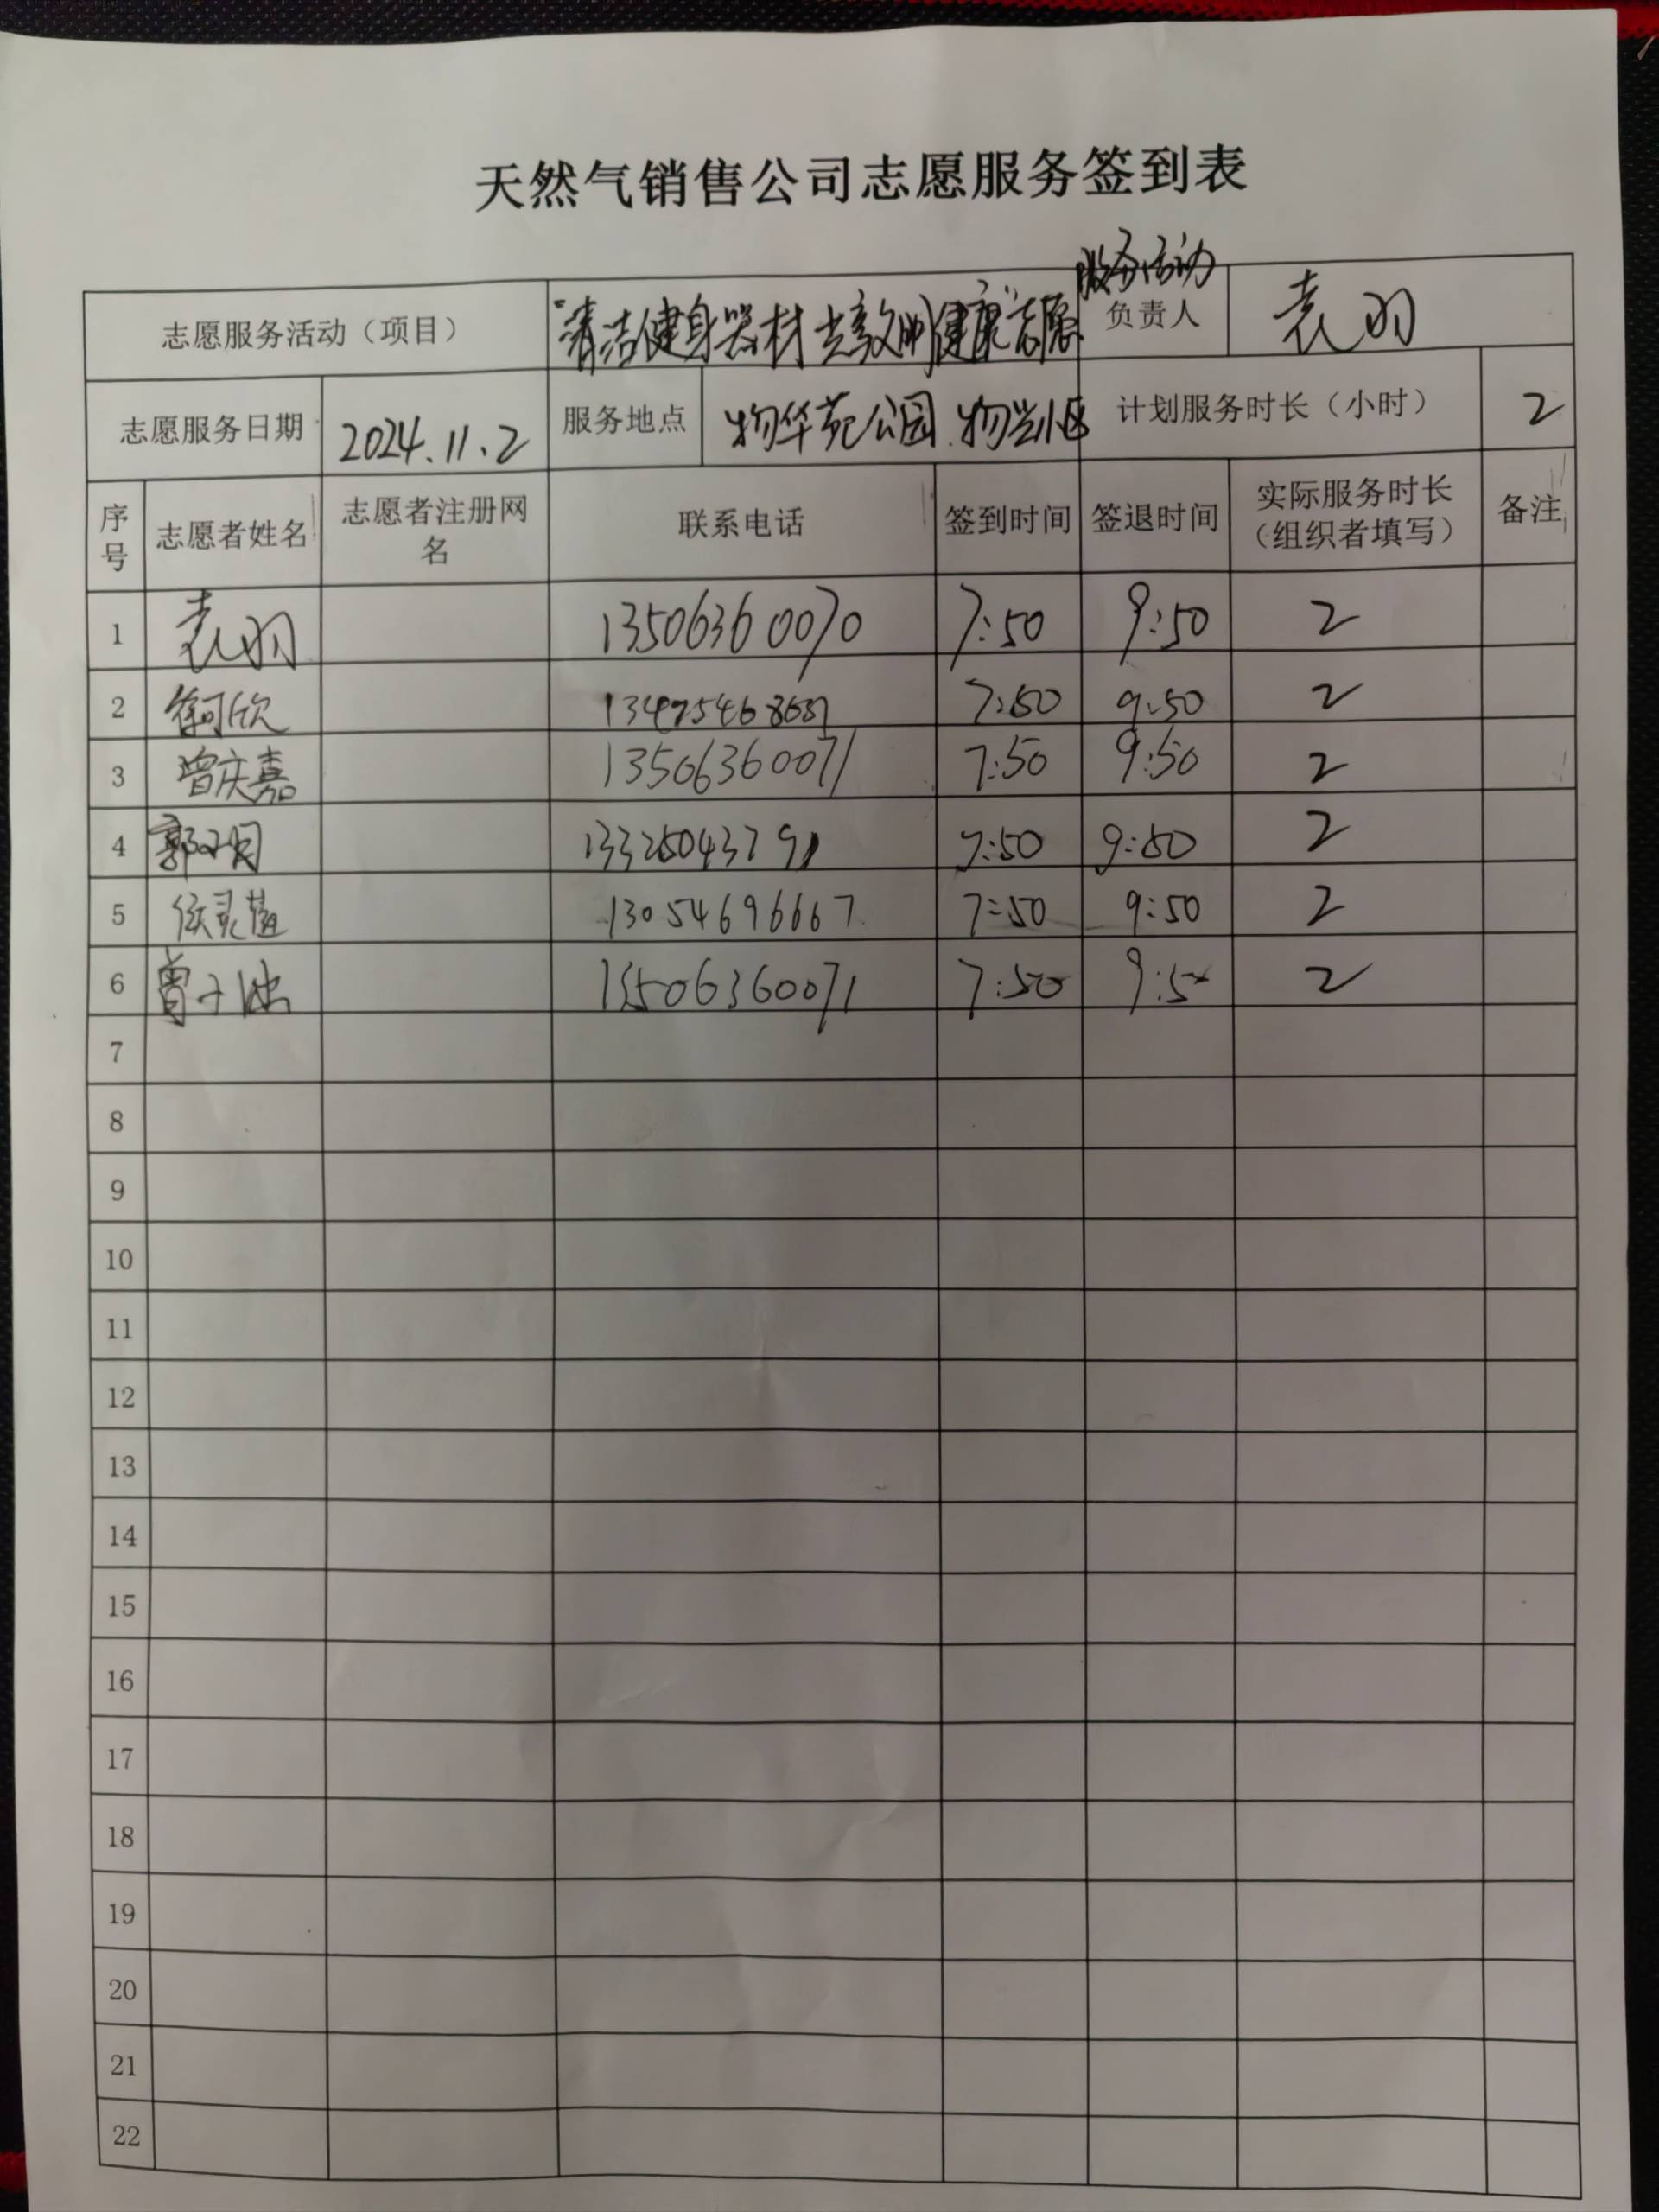 天然气销售公司志愿服务签到表
服务活动
志愿服务活动（项目） “清洁健身器材 共享文明健康”志愿 负责人 袁羽
志愿服务日期 2024.11.2 服务地点 物华苑公园 物兴小区 计划服务时长（小时） 2
序号 志愿者姓名 志愿者注册网名 联系电话 签到时间 签退时间 实际服务时长（组织者填写） 备注
1 袁羽 13506360070 7:50 9:50 2
2 7:50 9:50 2
3 曾庆嘉 13506360071 7:50 9:50 2
4 7:50 9:50 2
5 13054696667 7:50 9:50 2
6 13506360071 7:50 9:50 2
7
8
9
10
11
12
13
14
15
16
17
18
19
20
21
22